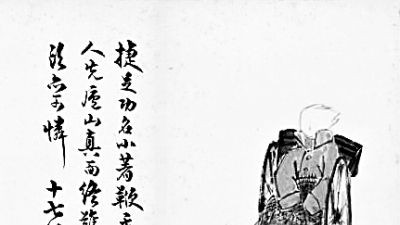 捷足功名小著鞭
人先廬山真面終難
可憐
十七